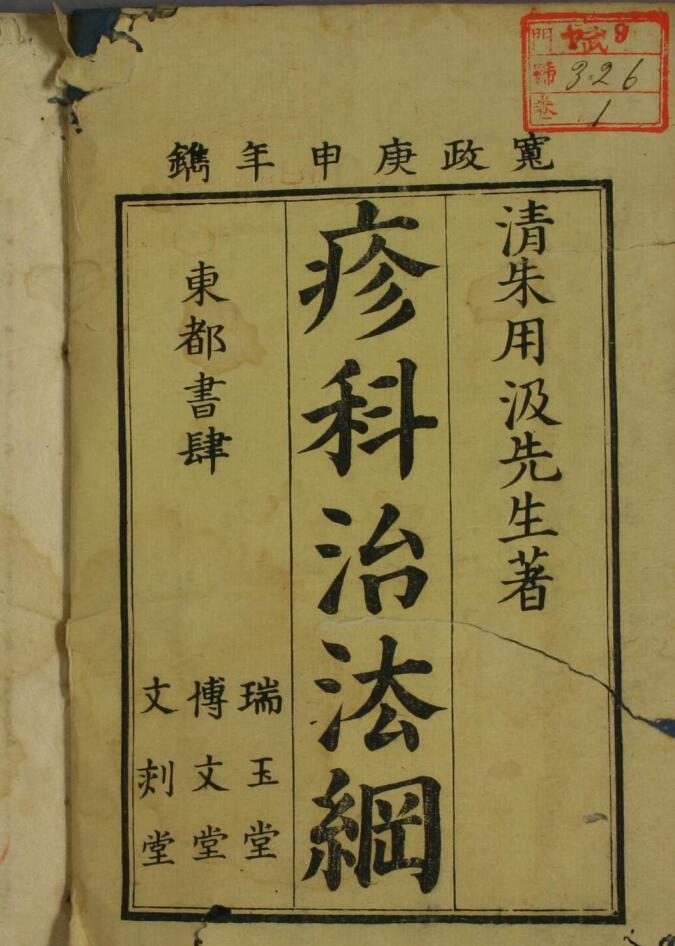 寬政庚申年鐫
清朱用汲先生著
疹科治法綱
東都書肆
瑞玉堂
博文堂
文刻堂
門 9
號 326
卷 1